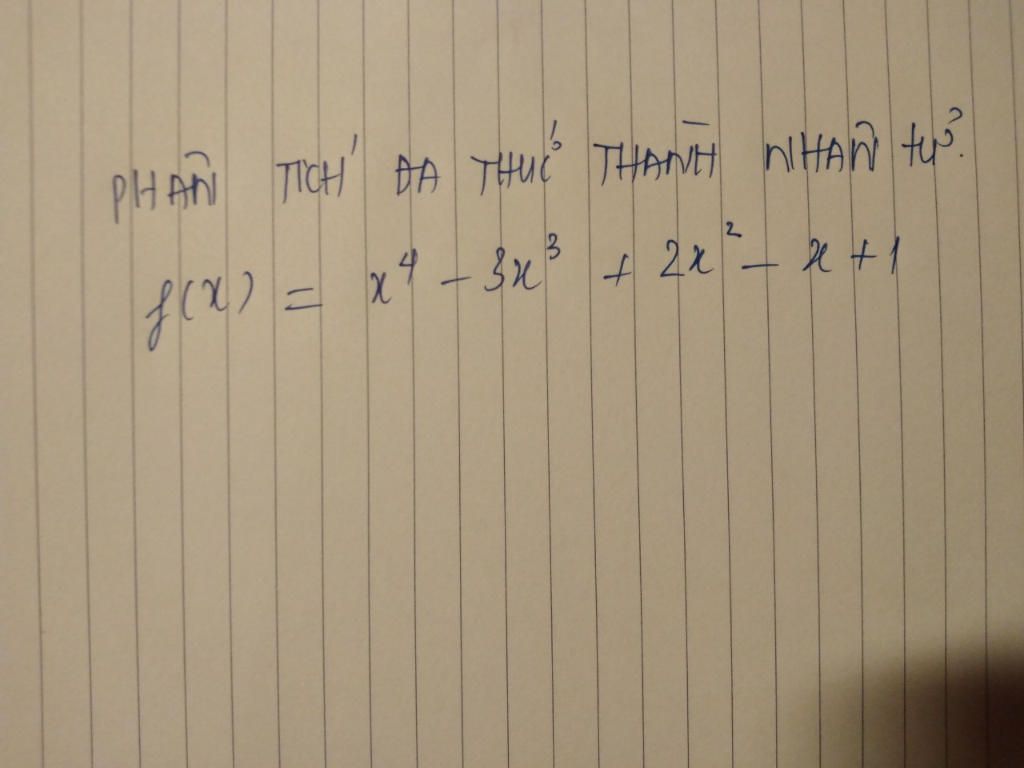 PHÂN TÍCH ĐA THỨC THÀNH NHÂN TỬ.
f(x) = x⁴ - 3x³ + 2x² - x + 1